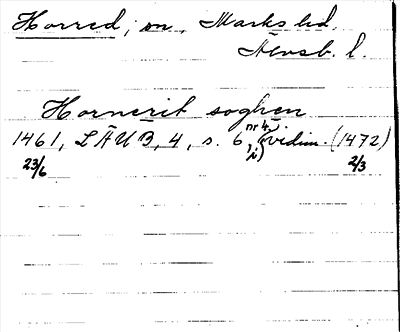 Horred, sn, Marks hd.
Älvsb. l.
Hornerit soghen
1461, LÄUB, 4, s. 6, nr 4, vidim. (1472)
23/6 2/3